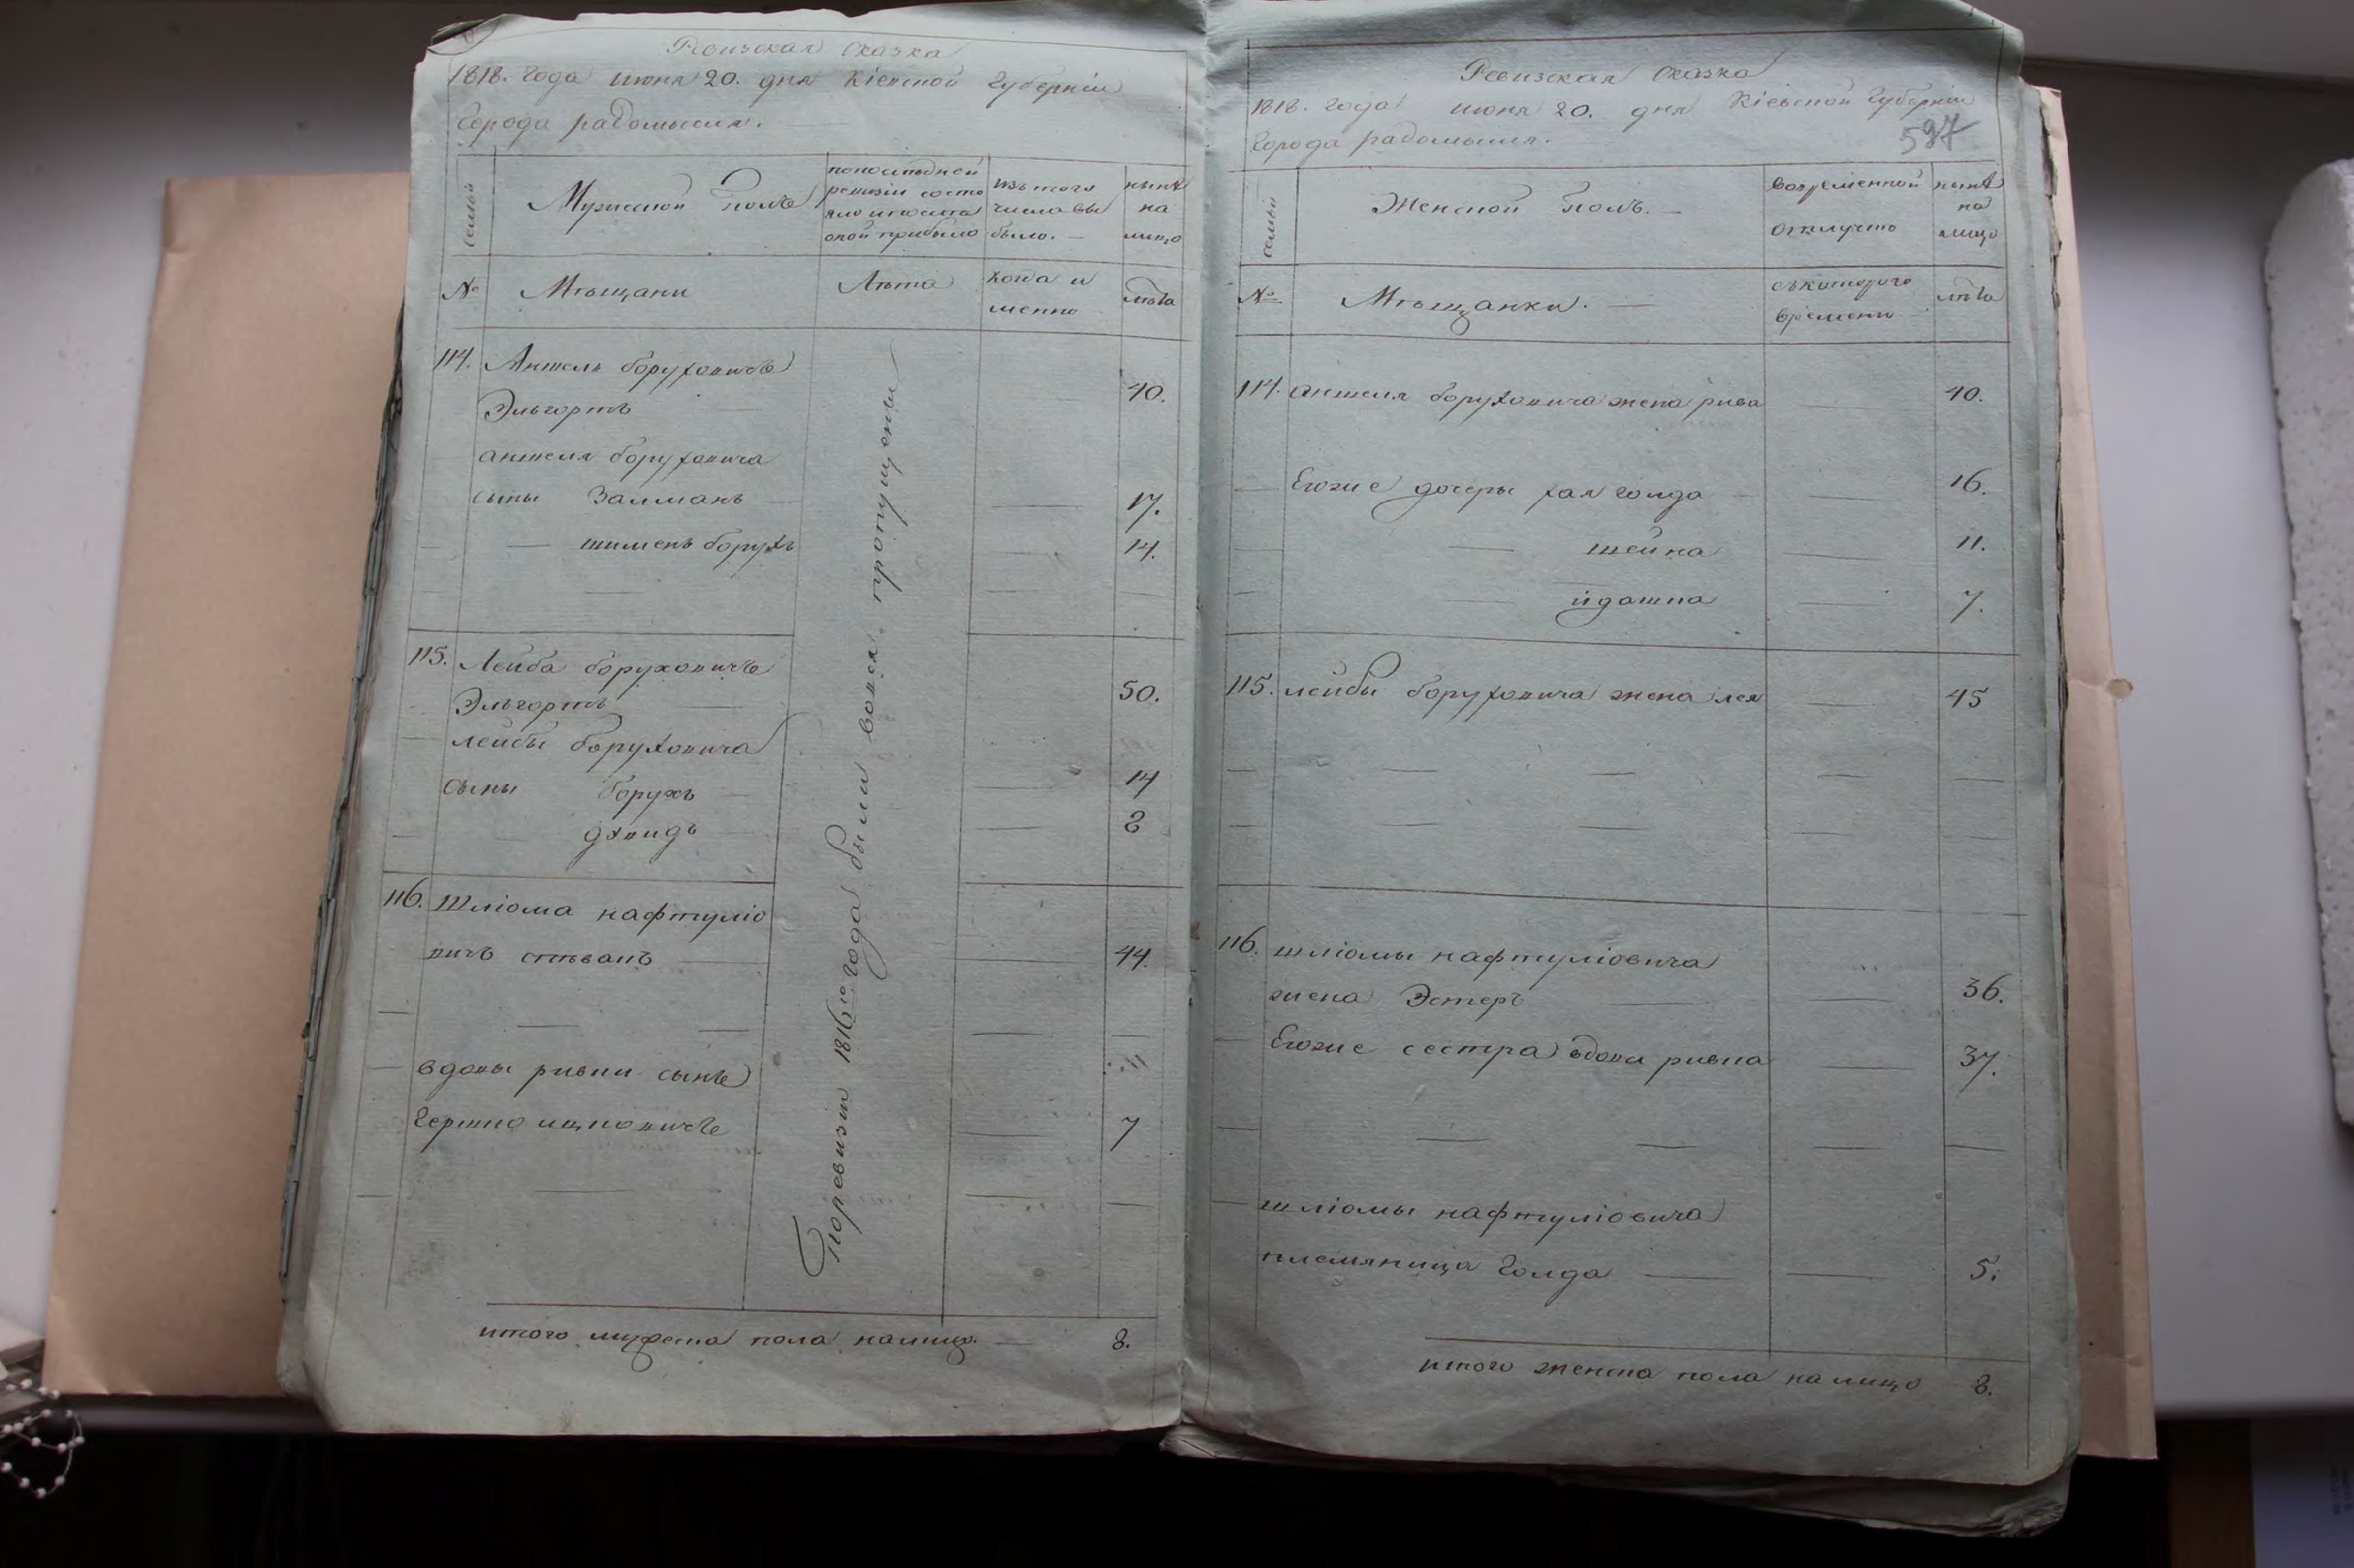 Ревизская сказка
1818. года июня 20. дня Кіевской Губерніи
Города радомысля.
семьи
Мужеской полъ
попоследней ревизіи состо яло ипосле оной прибыло
изътого числа вы было.
нынѣ на лицо
№
Мѣщани
Лѣта
когда и менно
лѣта
114. Аншель боруховичъ
Эльгортъ
40.
аншеля боруховича
сыны Залманъ
17.
шименъ борухъ
14.
115. Лейба боруховичъ
Эльгортъ
50.
лейбы боруховича
сыны борухъ
14
давидъ
8
116. Шліома нафтуліо
вичъ
44.
вдовы ривки сынъ
Гершко ицковичъ
7
Поревизіи 1816го года были вовся пропущены
итого мужеска пола налицо. 8.
Ревизская сказка
1818. года июня 20. дня Кіевской Губерніи
597
Города радомысля.
семьи
Женской полъ.
вовременной отлучке
нынѣ на лицо
№
Мѣщанки.
съкоторого времени
лѣта
114. аншеля боруховича жена рива
40.
Егоже дочеры хая голда
16.
шейна
11.
7.
115. лейбы боруховича жена лея
45
116. шліомы нафтуліовича
жена Эстеръ
36.
Егоже сестра вдова ривка
37.
шліомы нафтуліовича
племяница Голда
5.
итого женска пола на лицо 8.